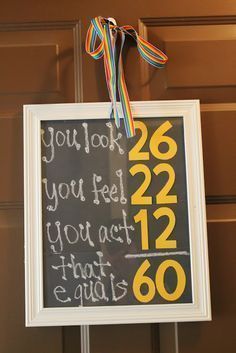 you look 26
you feel 22
you act 12
that
equals 60